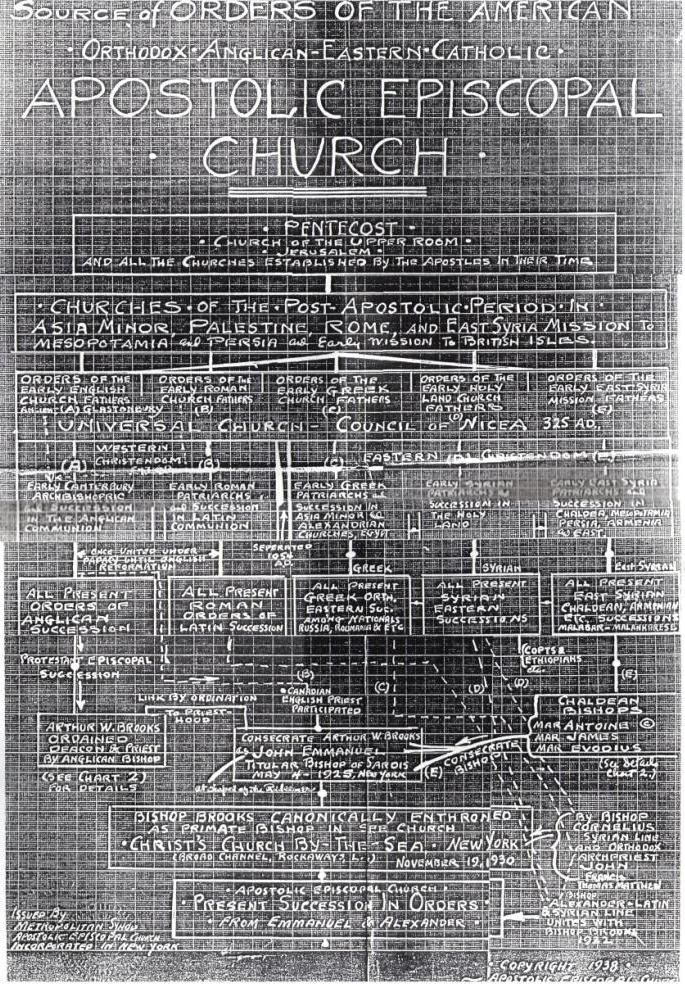 SOURCE of ORDERS OF THE AMERICAN
· ORTHODOX-ANGLICAN-EASTERN-CATHOLIC ·
APOSTOLIC EPISCOPAL
· CHURCH ·
· PENTECOST ·
· CHURCH OF THE UPPER ROOM ·
· JERUSALEM ·
AND ALL THE CHURCHES ESTABLISHED BY THE APOSTLES IN THEIR TIME
· CHURCHES · OF THE · POST-APOSTOLIC · PERIOD · IN ·
ASIA MINOR, PALESTINE, ROME, AND EAST SYRIA MISSION TO
MESOPOTAMIA and PERSIA and Early MISSION TO BRITISH ISLES.
ORDERS OF THE
EARLY ENGLISH
CHURCH FATHERS
Ancient (A) GLASTONBURY
ORDERS OF THE
EARLY ROMAN
CHURCH FATHERS
(B)
ORDERS OF THE
EARLY GREEK
CHURCH FATHERS
(C)
ORDERS OF THE
EARLY HOLY
LAND CHURCH
FATHERS
(D)
ORDERS OF THE
EARLY EAST SYRIA
MISSION FATHERS
(E)
UNIVERSAL CHURCH - COUNCIL OF NICEA 325 A.D.
WESTERN
CHRISTENDOM
(A)
(B)
(C)
EASTERN (D) CHRISTENDOM (E)
EARLY CANTERBURY
ARCHBISHOPRIC
and SUCCESSION
IN THE ANGLICAN
COMMUNION
EARLY ROMAN
PATRIARCHS
and SUCCESSION
IN LATIN
COMMUNION
EARLY GREEK
PATRIARCHS and
SUCCESSION IN
ASIA MINOR &
ALEXANDRIAN
CHURCHES, EGYPT
EARLY SYRIAN
PATRIARCHS and
SUCCESSION IN
THE HOLY
LAND
EARLY EAST SYRIA
PATRIARCHS and
SUCCESSION IN
CHALDEA, MESOPOTAMIA
PERSIA, ARMENIA
& EAST
ONCE UNITED UNDER
PAPACY UNTIL ENGLISH
REFORMATION
SEPERATED
1054
A.D.
GREEK
SYRIAN
East SYRIAN
ALL PRESENT
ORDERS OF
ANGLICAN
SUCCESSION
ALL PRESENT
ROMAN
ORDERS OF
LATIN SUCCESSION
ALL PRESENT
GREEK ORTH.
EASTERN SUC.
AMONG NATIONALS
RUSSIA, ROUMANIA & ETC
ALL PRESENT
SYRIAN
EASTERN
SUCCESSIONS
ALL PRESENT
EAST SYRIAN
CHALDEAN, ARMENIAN
ETC. SUCCESSIONS
MALABAR-MALANKARESE
PROTESTANT EPISCOPAL
SUCCESSION
COPTS &
ETHIOPIANS
etc.
(B)
(C)
(D)
(D)
(E)
LINK BY ORDINATION
TO PRIEST-
HOOD
· CANADIAN
ENGLISH PRIEST
PARTICIPATED
ARTHUR W. BROOKS
ORDAINED
DEACON & PRIEST
BY ANGLICAN BISHOP
(SEE CHART 2)
FOR DETAILS
CONSECRATE ARTHUR W. BROOKS
as JOHN EMMANUEL
TITULAR BISHOP OF SARDIS
MAY 4-1925, NEW YORK
at Chapel of the Redeemer
CONSECRATE
BISHOP
(E)
CHALDEAN
BISHOPS
MAR ANTOINE ©
MAR JAMES
MAR EVODIUS
(See Details
Chart 2.)
BISHOP BROOKS CANONICALLY ENTHRONED
AS PRIMATE BISHOP IN SEE CHURCH
· CHRIST'S CHURCH BY-THE-SEA · NEW YORK
(BROAD CHANNEL, ROCKAWAYS, L.I.)
NOVEMBER 19, 1930
BY BISHOP
CORNELIUS
SYRIAN LINE
AND ORTHODOX
ARCHPRIEST
JOHN
FRANCIS
THOMAS MATTHEW
BISHOP
ALEXANDER-LATIN
& SYRIAN LINE
UNITES WITH
BISHOP BROOKS
· APOSTOLIC EPISCOPAL CHURCH ·
· PRESENT SUCCESSION IN ORDERS ·
· FROM EMMANUEL & ALEXANDER ·
ISSUED BY
METROPOLITAN SYNOD
APOSTOLIC EPISCOPAL CHURCH
INCORPORATED IN NEW YORK
· COPYRIGHT 1938 ·
APOSTOLIC EPISCOPAL CHURCH